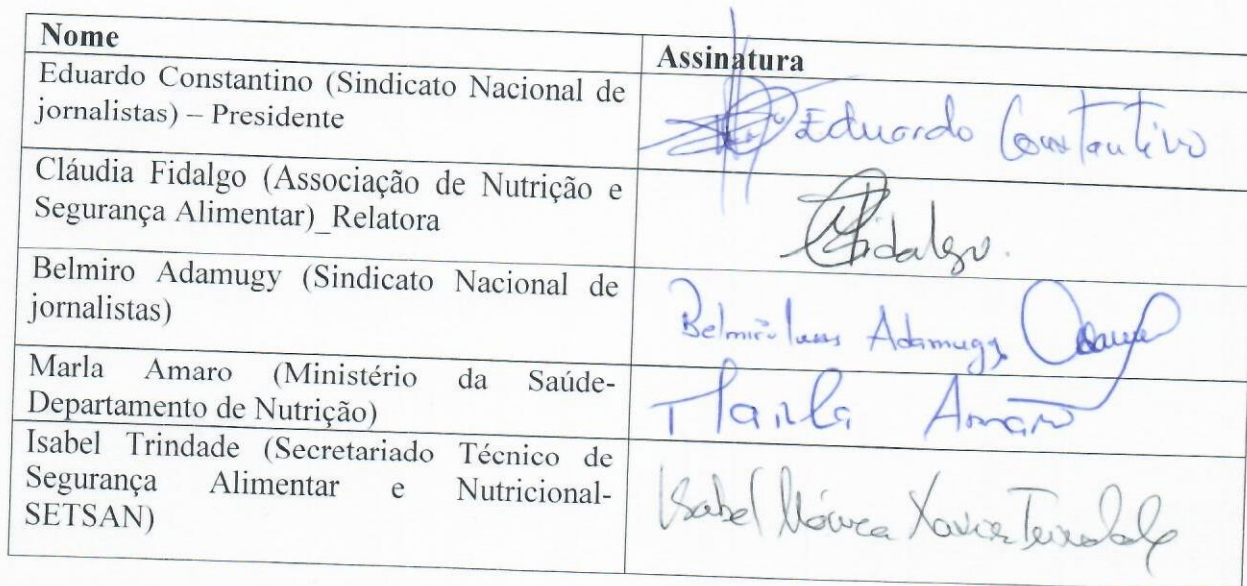 Nome
Assinatura
Eduardo Constantino (Sindicato Nacional de
jornalistas) – Presidente
Eduardo Constantino
Cláudia Fidalgo (Associação de Nutrição e
Segurança Alimentar)_Relatora
Fidalgo.
Belmiro Adamugy (Sindicato Nacional de
jornalistas)
Belmiro Adamugy
Marla Amaro (Ministério da Saúde-
Departamento de Nutrição)
Marla Amaro
Isabel Trindade (Secretariado Técnico de
Segurança Alimentar e Nutricional-
SETSAN)
Isabel Xavier Trindade